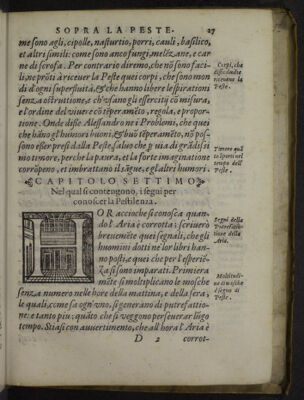 SOPRA LA PESTE. 27
me sono agli, cipolle, nasturtio, porri, cauli, basilico,
et altri simili: come sono anco fungi, melõzane, e car
ne di scrofa. Per contrario diremo, che nõ sono facili
li, ne prõti à riceuer la Peste quei corpi, che sono mon
di d'ogni superfluità, & che hanno libere le spirationi
senza ostruttione, & ch'vsano gli essercitij cõ misura,
e l'ordine del viuere cõ tẽperamẽto, regola, e propor-
tione. Onde disse Alessandro ne i Problemi, che quei
che hãno gl'humori buoni, & buõ tẽperamẽto, nõ pos-
sono esser presi dalla Peste, saluo che p via di grãdissi
mo timore, perche la paura, et la forte imaginatione
corrõpeno, et imbrattano il sãgue, e gl'altri humori.
Corpi, che
difficilmẽte
riceuono la
Peste.
Timore quã
to
nel
tempo dell'
Peste.
CAPITOLO SETTIMO
Nel qual si contengono, i segni per
conoscer la Pestilenza.
OR accioche si conosca quan-
do l'Aria è corrotta; scriuerò
breuemẽte quei segnali, che gli
huomini dotti ne lor libri han-
no posti, e quei che per l'esperiẽ-
za si sono imparati. Primiera
mẽte si moltiplicano le mosche
senza numero nelle hore della mattina, e della sera,
le quali, come sa ogn'vno, si generano di putrefattio-
ne: e tanto piu, quãto che si veggono perseuerar lũgo
tempo. Stia si con auuertimento, che all'hora l'Aria è
Segni della
Putrefat-
tione della
Aria.
Moltitudi-
ne di mosche
è segno di
Peste.
D 2 corrot-